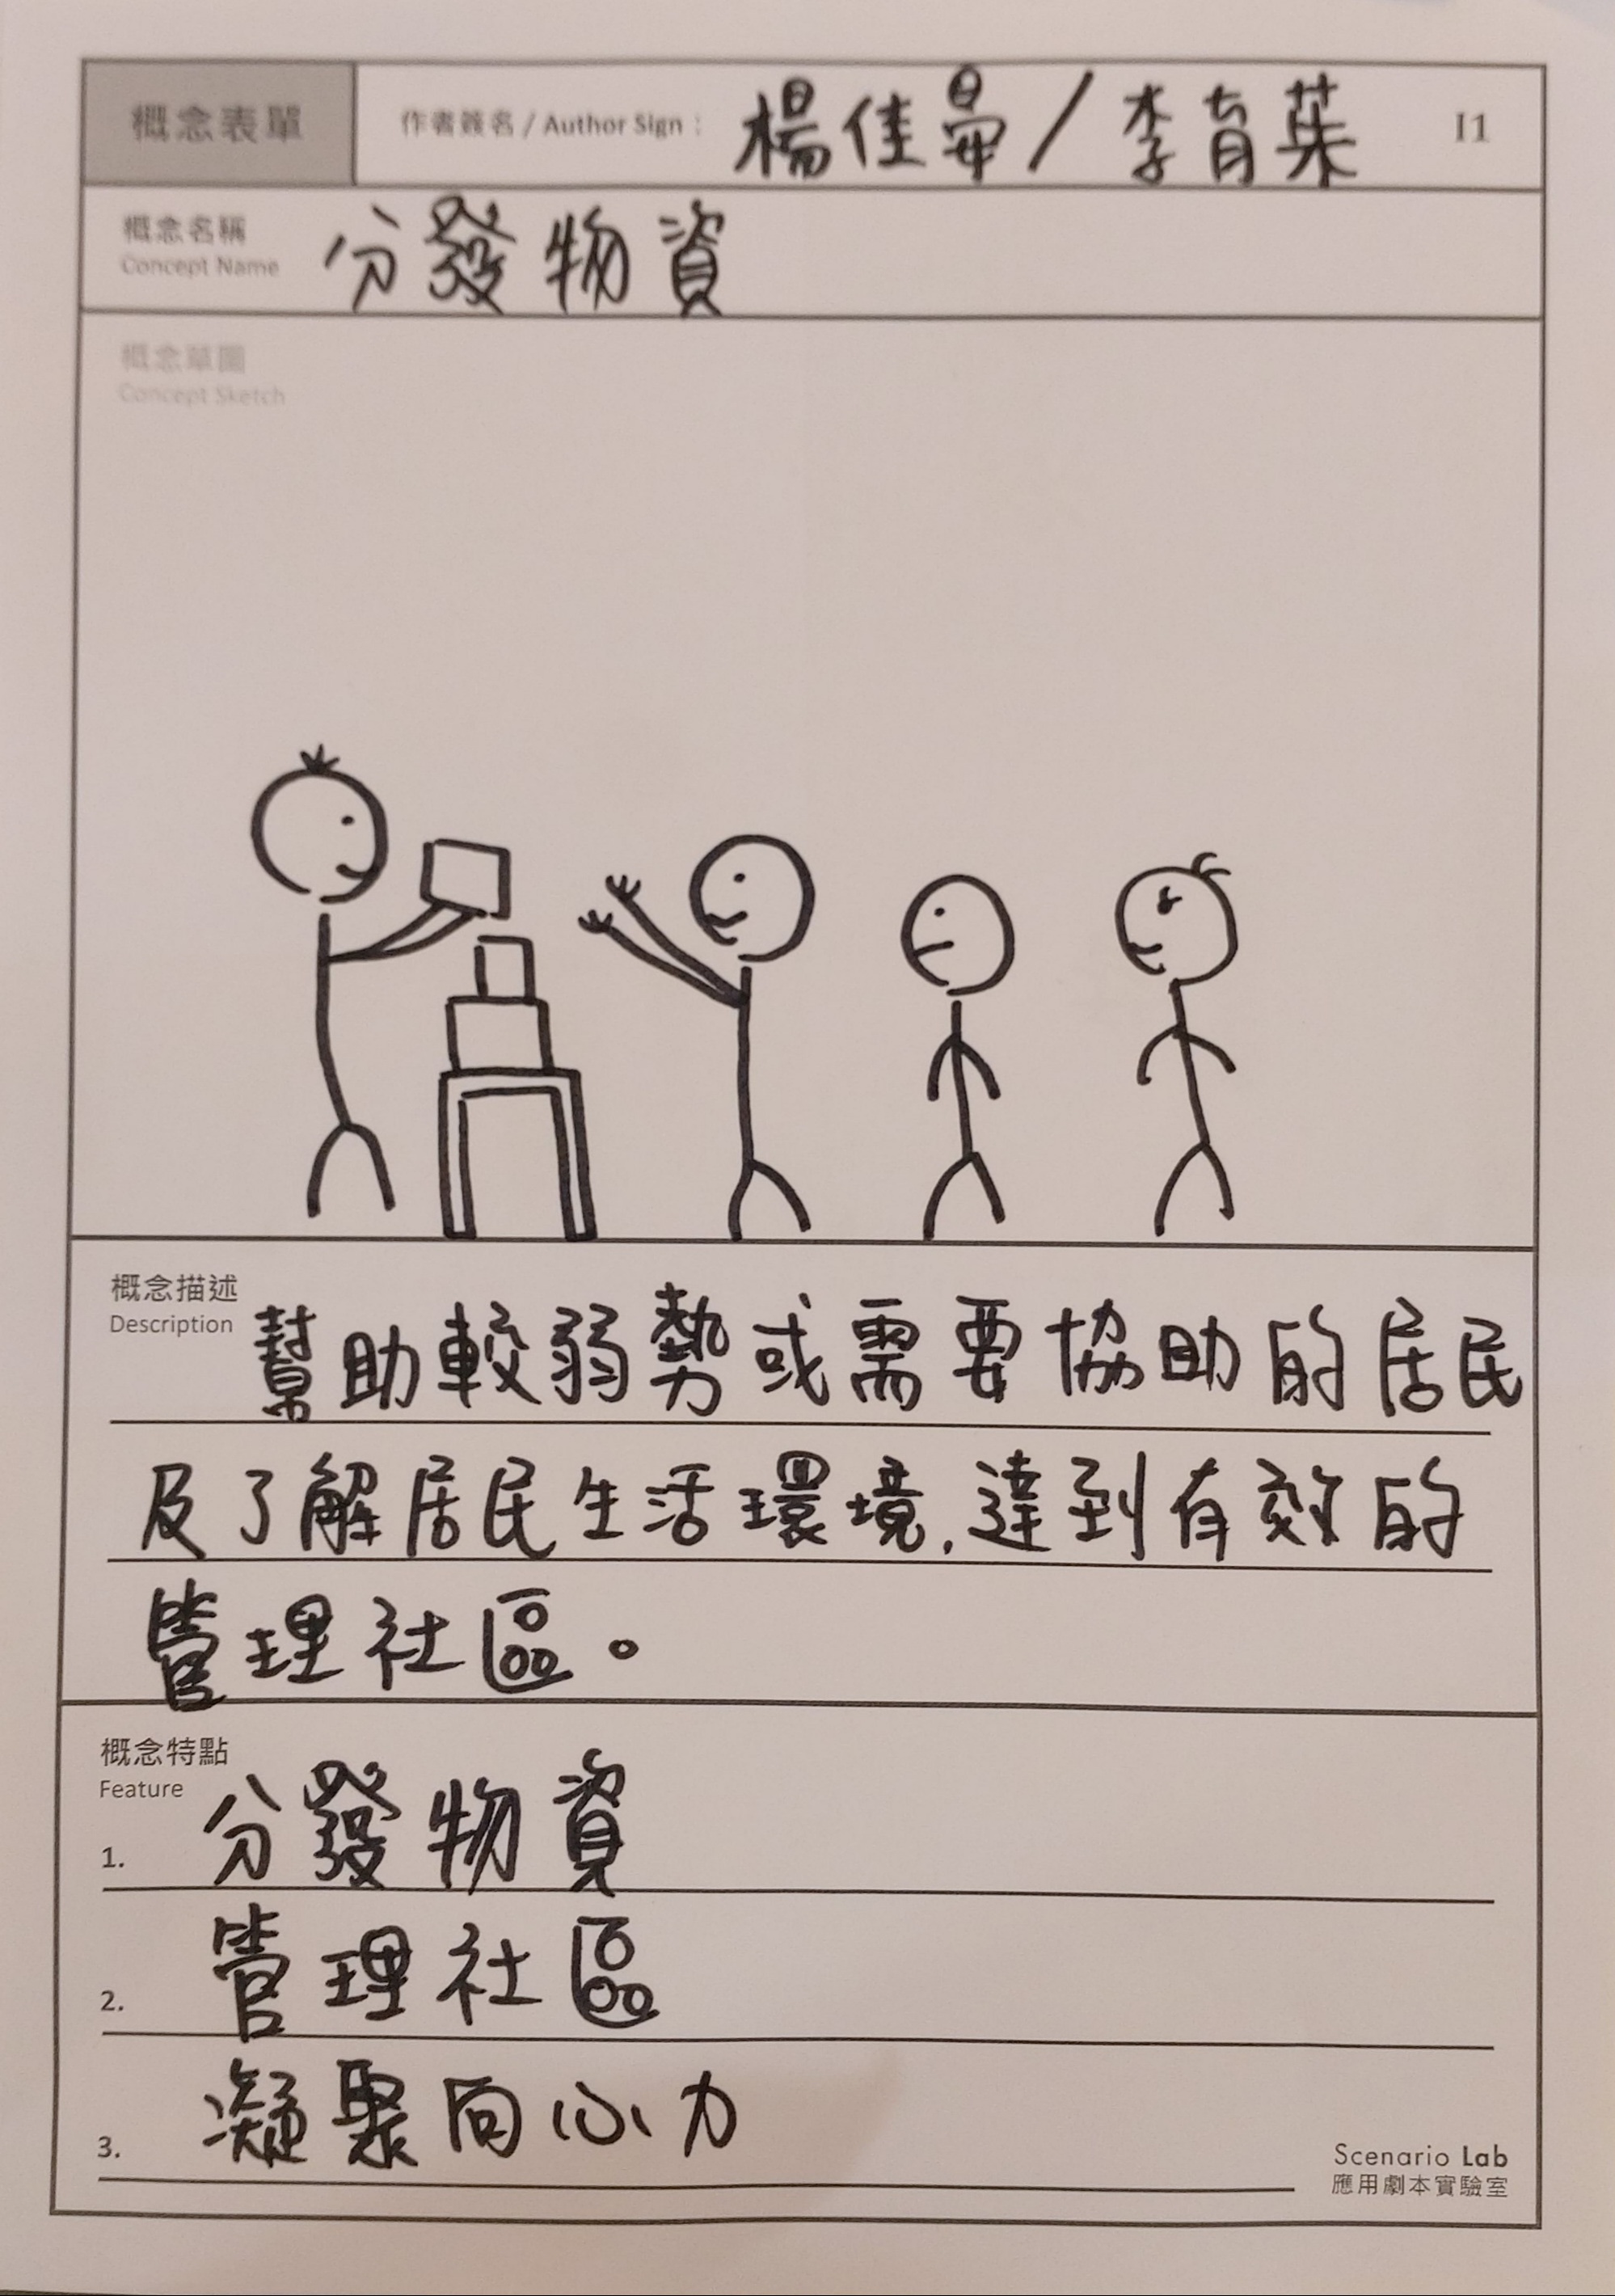 概念表單
作者簽名 / Author Sign : 楊佳晕 / 李育葇
I1
概念名稱
Concept Name
分發物資
概念草圖
Concept Sketch
概念描述
Description
幫助較弱勢或需要協助的居民
及了解居民生活環境,達到有效的
管理社區。
概念特點
Feature
1. 分發物資
2. 管理社區
3. 凝聚向心力
Scenario Lab
應用劇本實驗室